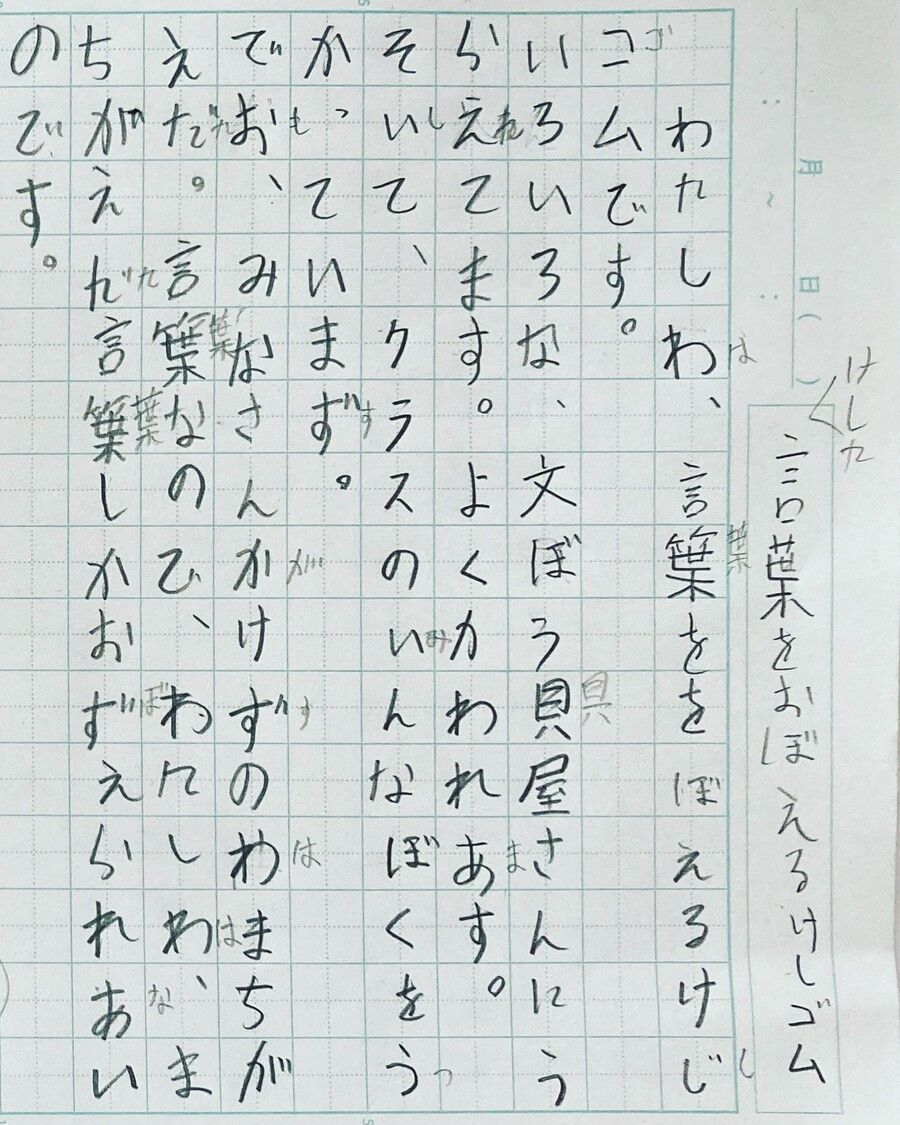 月 日( )
けした
言葉をおぼえるけしゴム
わたしわ、言葉ををぼえるけじ
は 葉 し
コムです。
ゴ
いろいろな、文ぼう貝屋さんにう
具
らえてます。よくカわれあす。
れ ま
そいて、クラスのいんなぼくをう
し み っ
かっていまず。
も す
でお、みなさんかけずのわまちが
が す は
えだ。言葉なので、わたしわ、ま
た 葉 は
ちがえだ言葉しかおずえられあい
た 葉 ぼ な
のです。